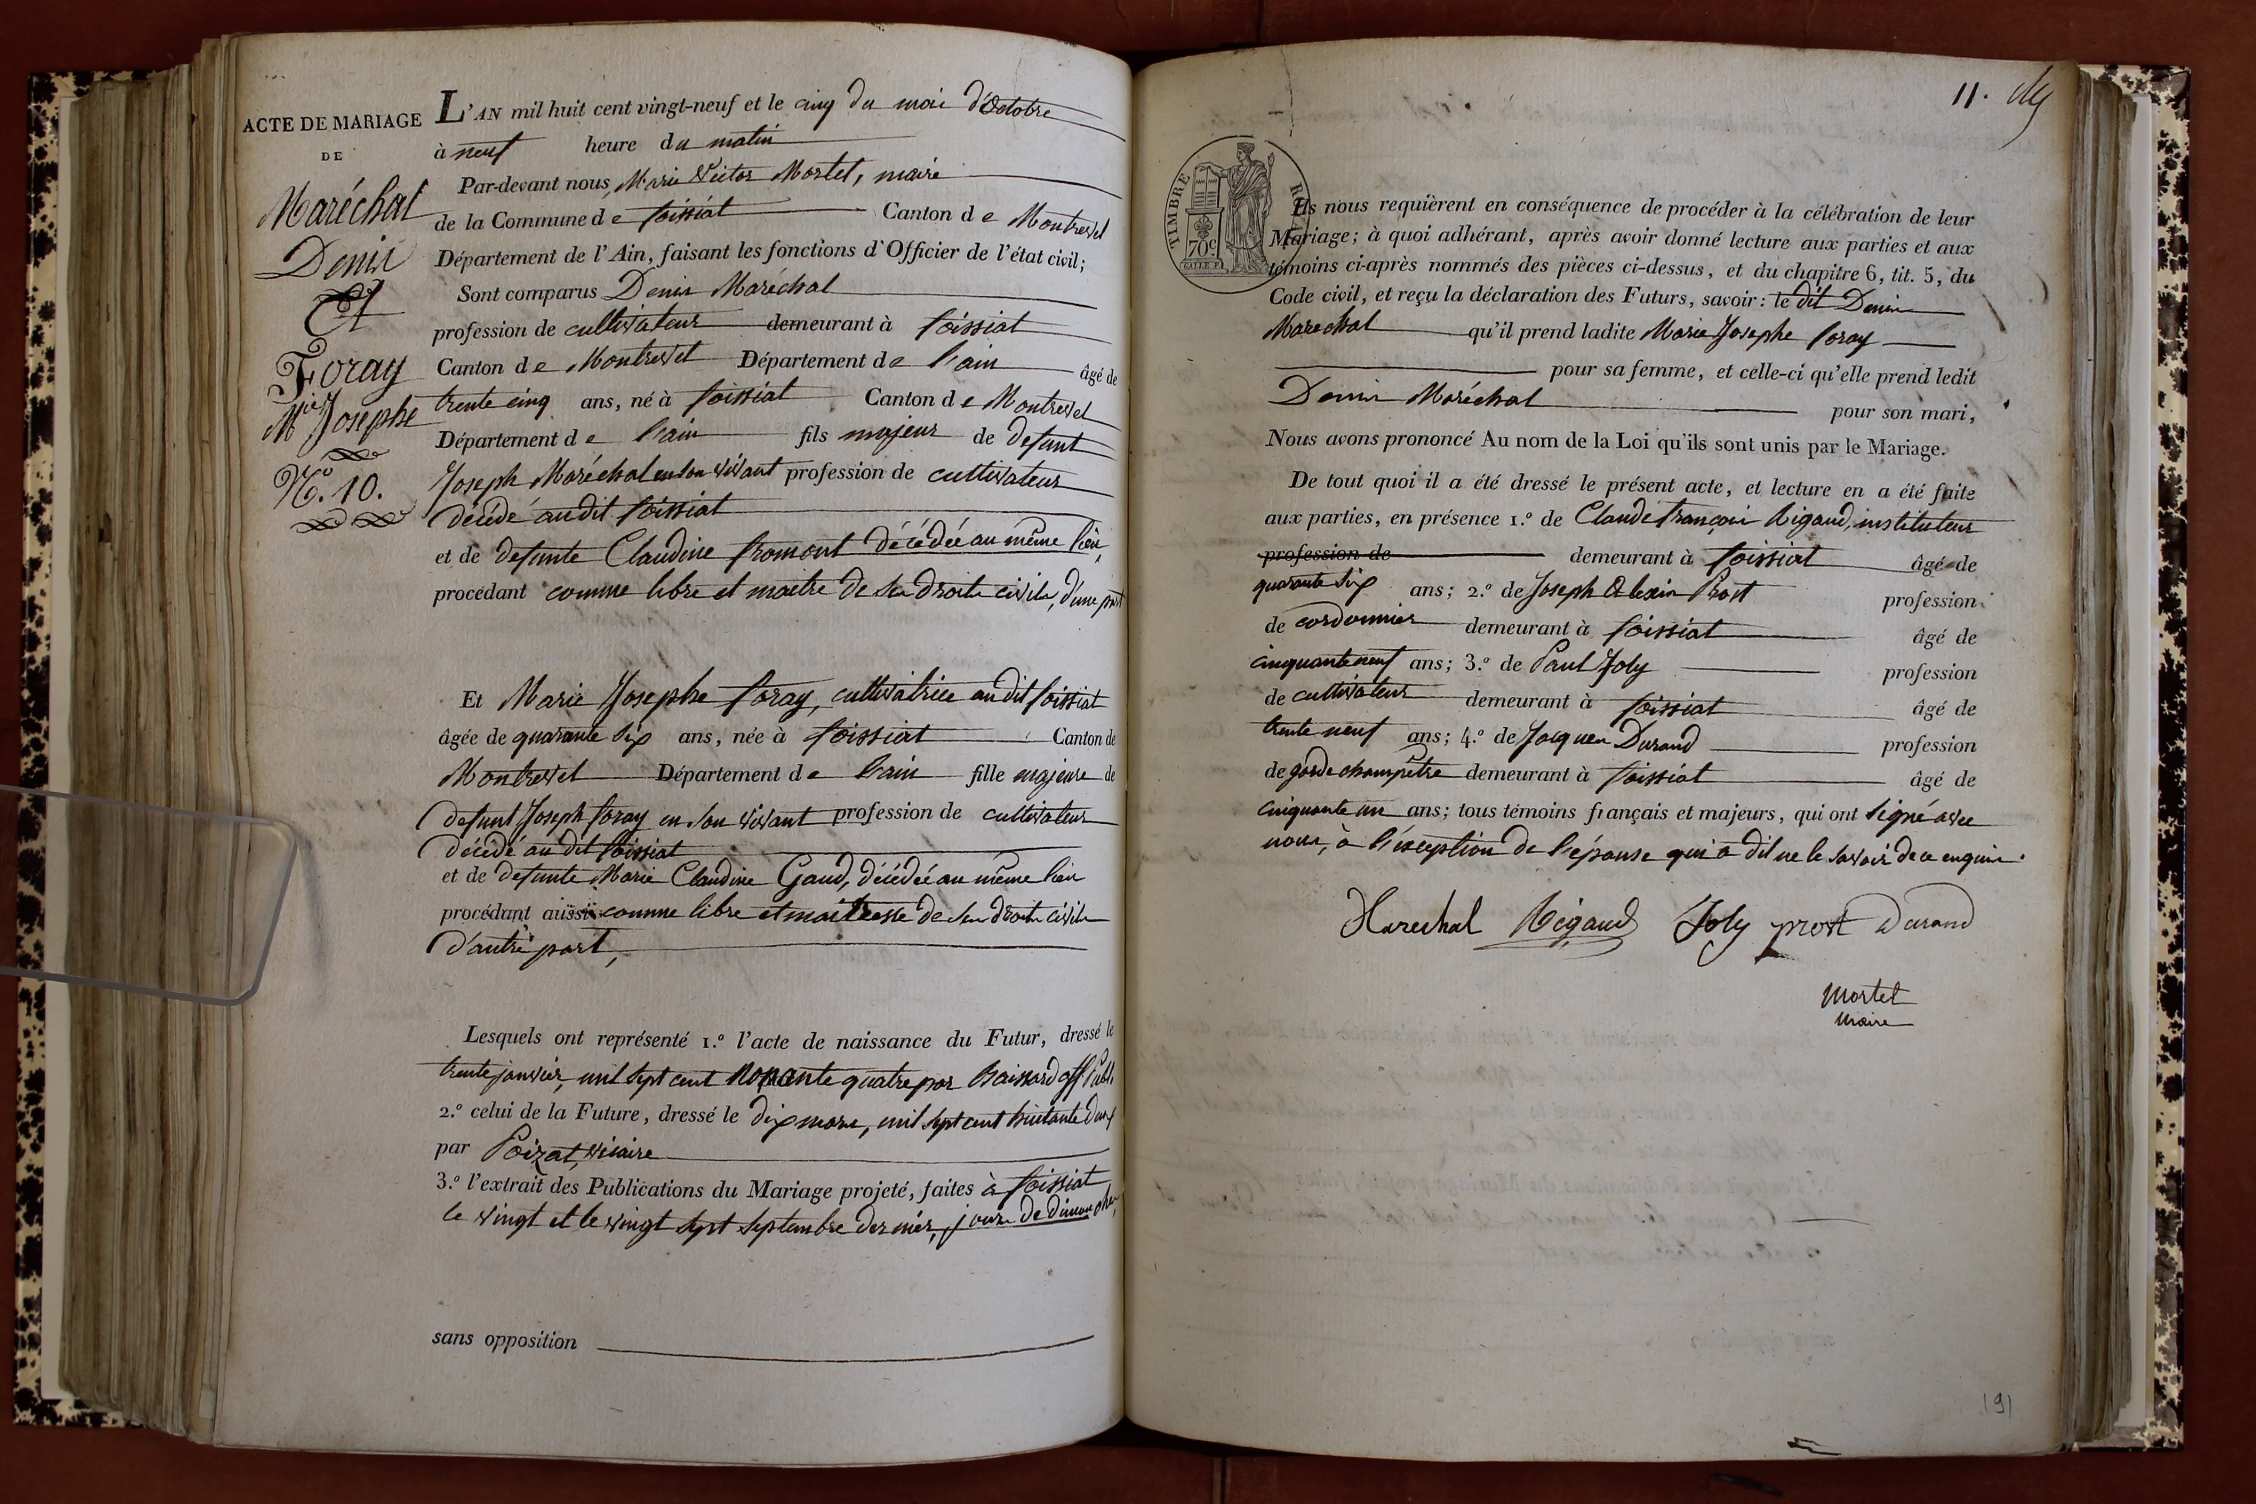 ACTE DE MARIAGE
DE
Maréchal
Denis
Et
Foray
Mie Josephe
No. 10.
L'AN mil huit cent vingt-neuf et le cinq du mois d'Octobre
à neuf heure du matin
Par-devant nous, Marie Victor Mortel, maire
de la Commune de foissiat Canton de Montrevel
Département de l'Ain, faisant les fonctions d'Officier de l'état civil;
Sont comparus Denis Maréchal
profession de cultivateur demeurant à foissiat
Canton de Montrevel Département de l'ain âgé de
trente cinq ans, né à foissiat Canton de Montrevel
Département de l'ain fils majeur de defunt
Joseph Maréchal en son vivant profession de cultivateur
décédé au dit foissiat
et de defunte Claudine fromont décédée au même lieu,
procédant comme libre et maitre de ses droits civils, d'une part
Et Marie Josephe foray, cultivatrice au dit foissiat
âgée de quarante six ans, née à foissiat Canton de
Montrevel Département de l'ain fille majeure de
defunt Joseph foray en son vivant profession de cultivateur
décédé au dit foissiat
et de defunte Marie Claudine Gaud, décédée au même lieu
procédant aussi comme libre et maitresse de ses droits civils
d'autre part,
Lesquels ont représenté 1.º l'acte de naissance du Futur, dressé le
trente janvier, mil sept cent nonante quatre par off. Publ.
2.º celui de la Future, dressé le dix mars, mil sept cent huitante deux
par Poizat, vicaire
3.º l'extrait des Publications du Mariage projeté, faites à foissiat
le vingt et le vingt sept septembre dernier, jours de dimanche,
sans opposition
11.
TIMBRE ROYAL
70c
Ils nous requièrent en conséquence de procéder à la célébration de leur
Mariage; à quoi adhérant, après avoir donné lecture aux parties et aux
témoins ci-après nommés des pièces ci-dessus, et du chapitre 6, tit. 5, du
Code civil, et reçu la déclaration des Futurs, savoir: le dit Denis
Marechal qu'il prend ladite Marie Josephe foray
pour sa femme, et celle-ci qu'elle prend ledit
Denis Maréchal pour son mari,
Nous avons prononcé Au nom de la Loi qu'ils sont unis par le Mariage.
De tout quoi il a été dressé le présent acte, et lecture en a été faite
aux parties, en présence 1.º de Claude françois Rigaud, instituteur
profession de demeurant à foissiat âgé de
quarante six ans; 2.º de Joseph Alexis Prost profession
de cordonnier demeurant à foissiat âgé de
cinquante neuf ans; 3.º de Paul Joly profession
de cultivateur demeurant à foissiat âgé de
trente neuf ans; 4.º de Jacques Durand profession
de garde champêtre demeurant à foissiat âgé de
cinquante un ans; tous témoins français et majeurs, qui ont signé avec
nous, à l'exception de l'épouse qui a dit ne le savoir de ce enquise.
Marechal Rigaud Joly prost Durand
Mortel
Maire